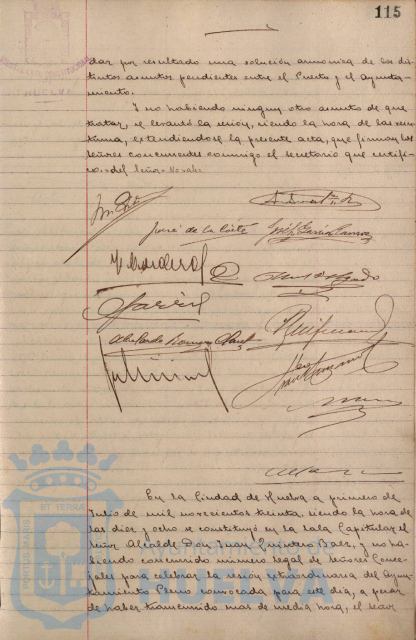 115
HUELVA
dar por resultado una solución armónica de los dis-
tintos asuntos pendientes entre el Puerto y el Ayunta-
miento.
Y no habiendo ningun otro asunto de que
tratar, se levantó la sesión, siendo la hora de las
extendiendose la presente acta, que firman los
señores concurrentes conmigo el secretario que certifi-
co= del Señor=
José de la Corte
En la Ciudad de Huelva a primero de
Julio de mil novecientos treinta, siendo la hora de
las diez y ocho se constituyó en la Sala Capitular el
Señor Alcalde Don Juan Quintero Baez, y no ha-
biendo concurrido número legal de Señores Conce-
jales para celebrar la sesión extraordinaria del Ayun-
tamiento Pleno convocada para este dia, a pesar
de haber transcurrido mas de media hora, el
Ayuntamiento de
HUELVA
PORTUS MARIS
ET TERRÆ